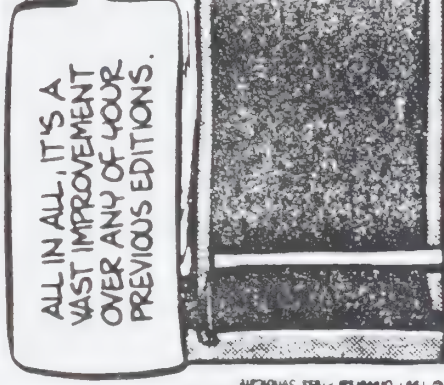 ALL IN ALL, IT'S A
VAST IMPROVEMENT
OVER ANY OF YOUR
PREVIOUS EDITIONS.